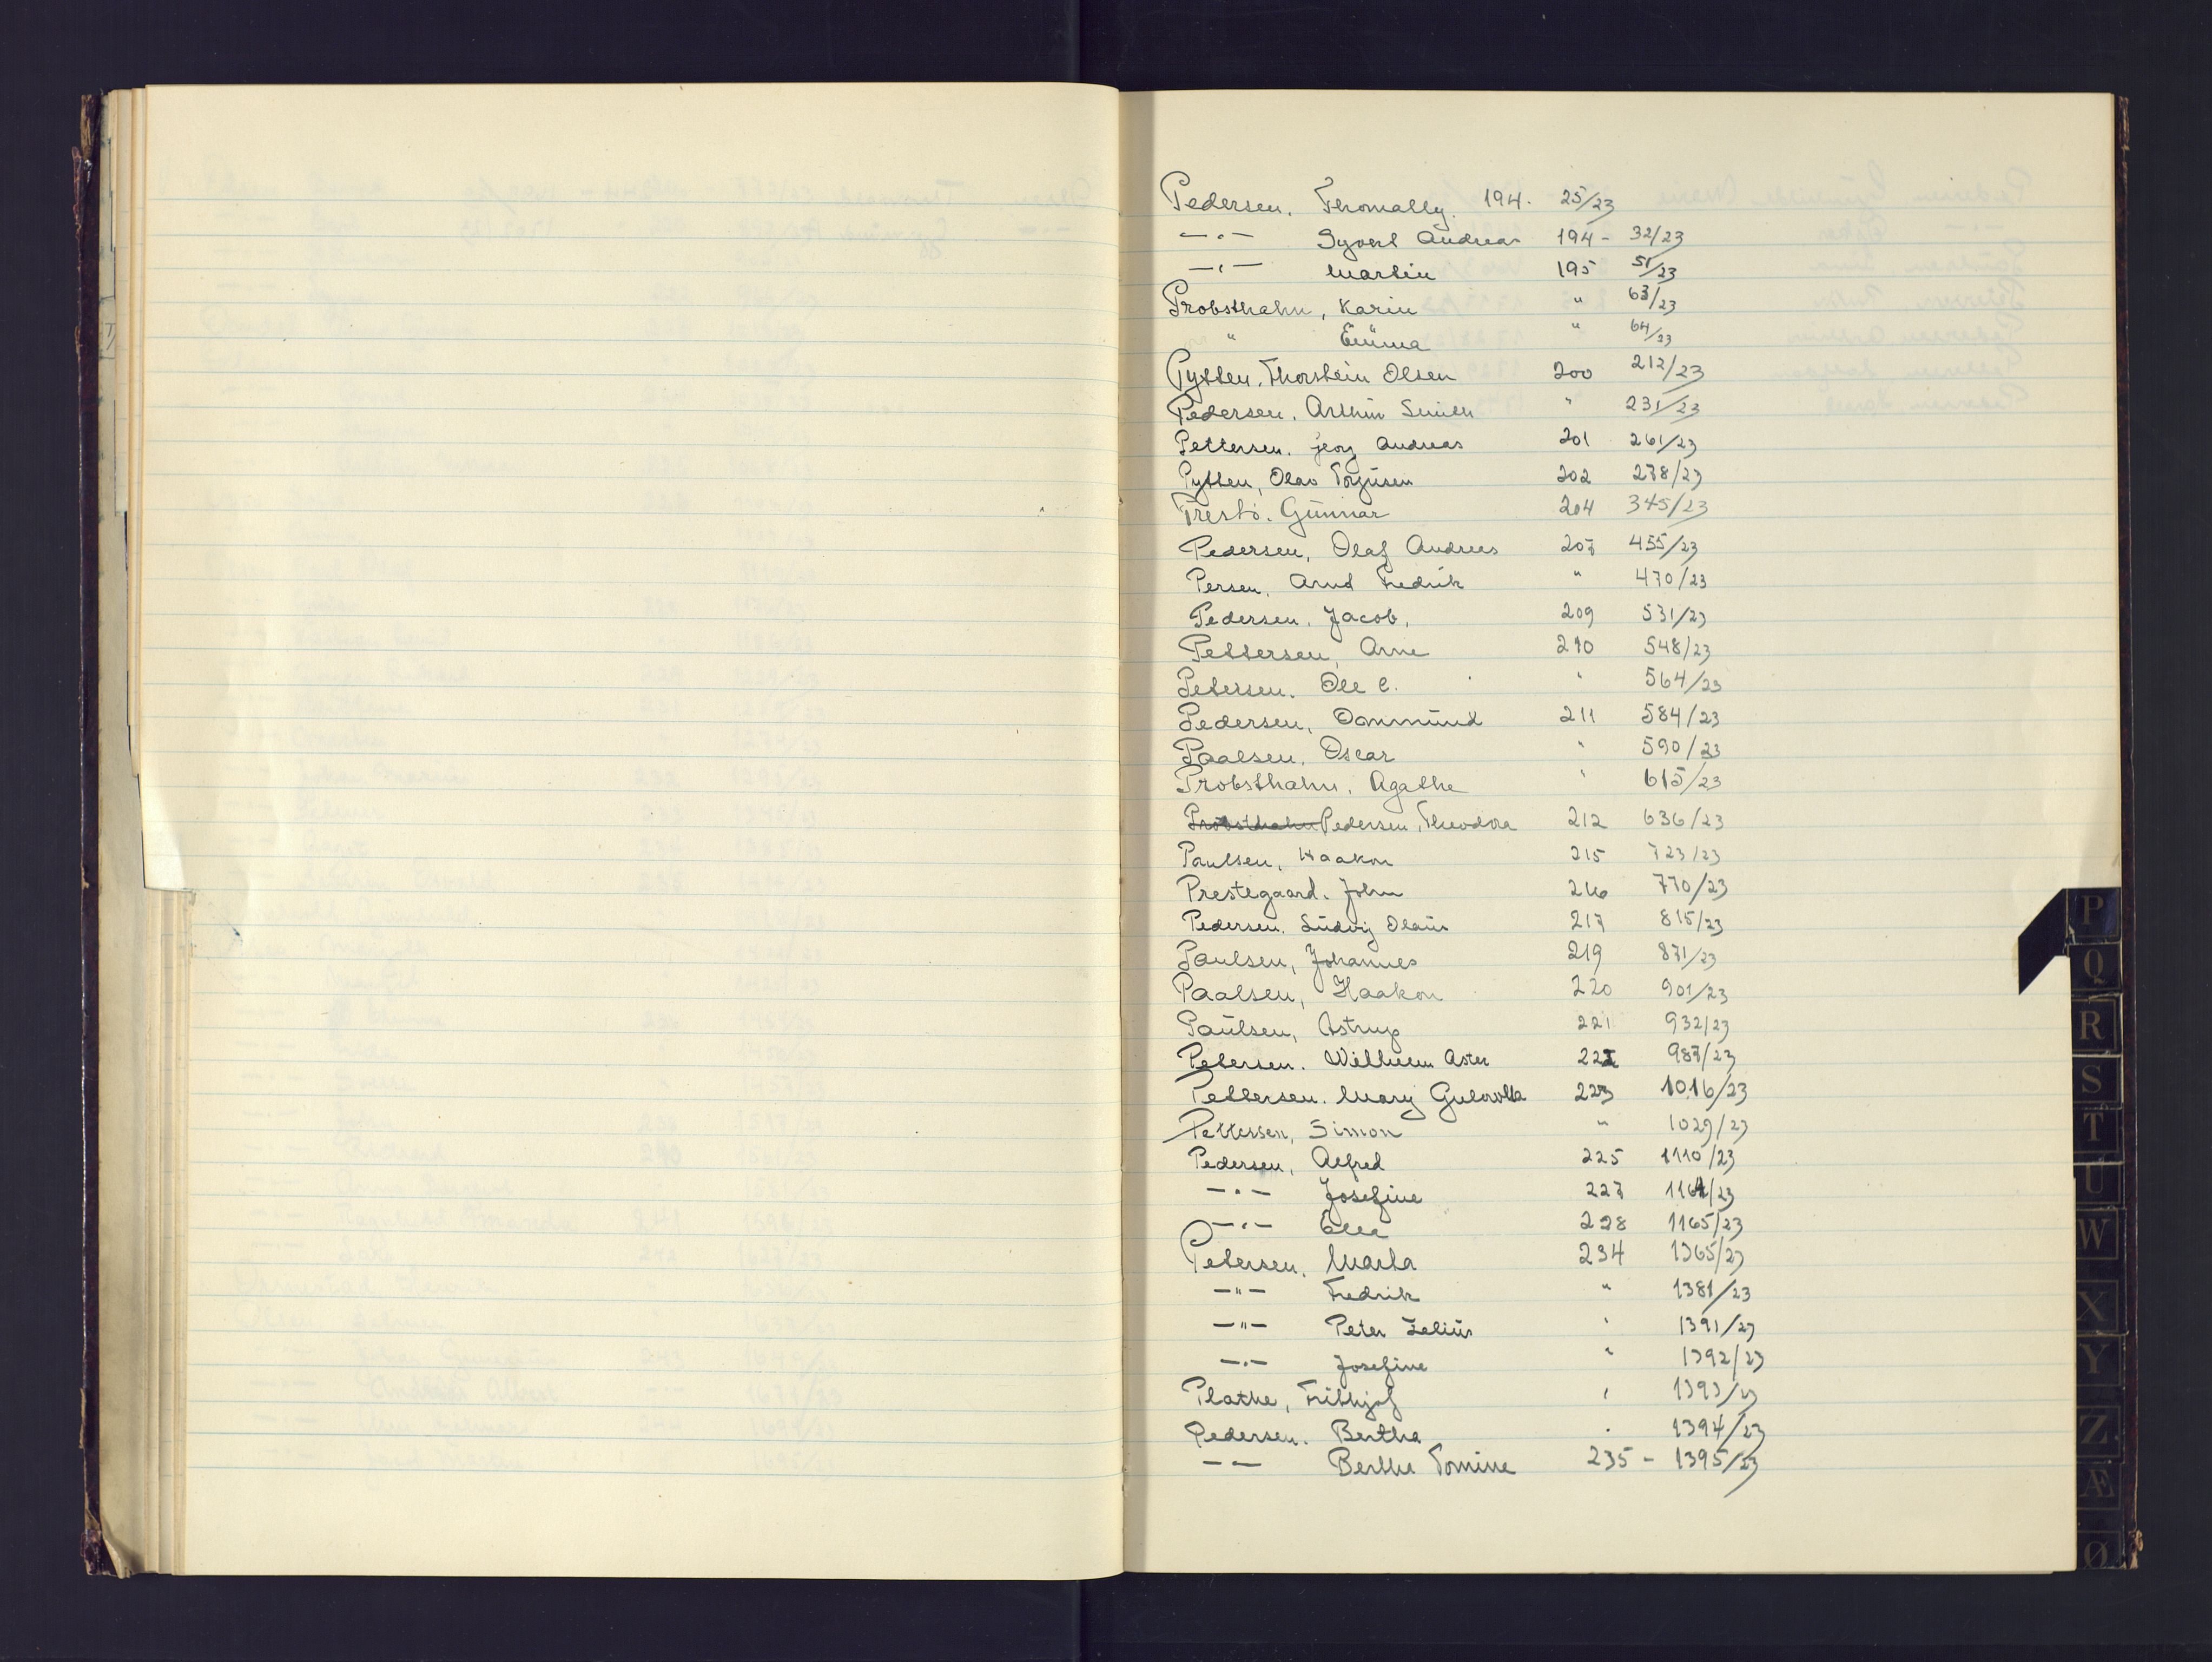 Pedersen. Thomally. 194. 25/23
—"— Syvert Andreas 194 - 32/23
—"— Martin 195 51/23
Probsthahn, Karin " 63/23
" Emma " 64/23
Pytten. Thorstein Olsen 200 212/23
Pedersen. Arthur Smith " 231/23
Pettersen. Georg Andreas 201 261/23
Pytten, Olav Torjusen 202 278/23
Prestö. Gunnar 204 345/23
Pedersen, Olaf Andreas 207 455/23
Persen. Arnt Fredrik " 470/23
Pedersen. Jacob. 209 531/23
Pettersen, Arne 210 548/23
Petersen. Ole C. " 564/23
Pedersen, Dommund 211 584/23
Paalsen, Oscar " 590/23
Probsthahn, Agathe " 615/23
Probsthahn Pedersen, Theodora 212 636/23
Paulsen, Haakon 215 723/23
Prestegaard. John 216 770/23
Pedersen. Ludvig Olaus 217 815/23
Paulsen, Johannes 219 871/23
Paalsen, Haakon 220 901/23
Paulsen, Astrup 221 932/23
Petersen. Wilhelm Aster 222 987/23
Pettersen. Mary 223 1016/23
Pettersen, Simon " 1029/23
Pedersen, Alfred 225 1110/23
—"— Josefine 227 1164/23
—"— Ella 228 1165/23
Petersen. Marta 234 1365/23
—"— Fredrik " 1381/23
—"— Peter Zelius " 1391/23
—"— Josefine " 1392/23
Plathe, Frithjof " 1393/23
Pedersen. Bertha " 1394/23
—"— Berthe Tomine 235 - 1395/23
P
Q
R
S
T
U
W
X
Y
Z
Æ
Ø